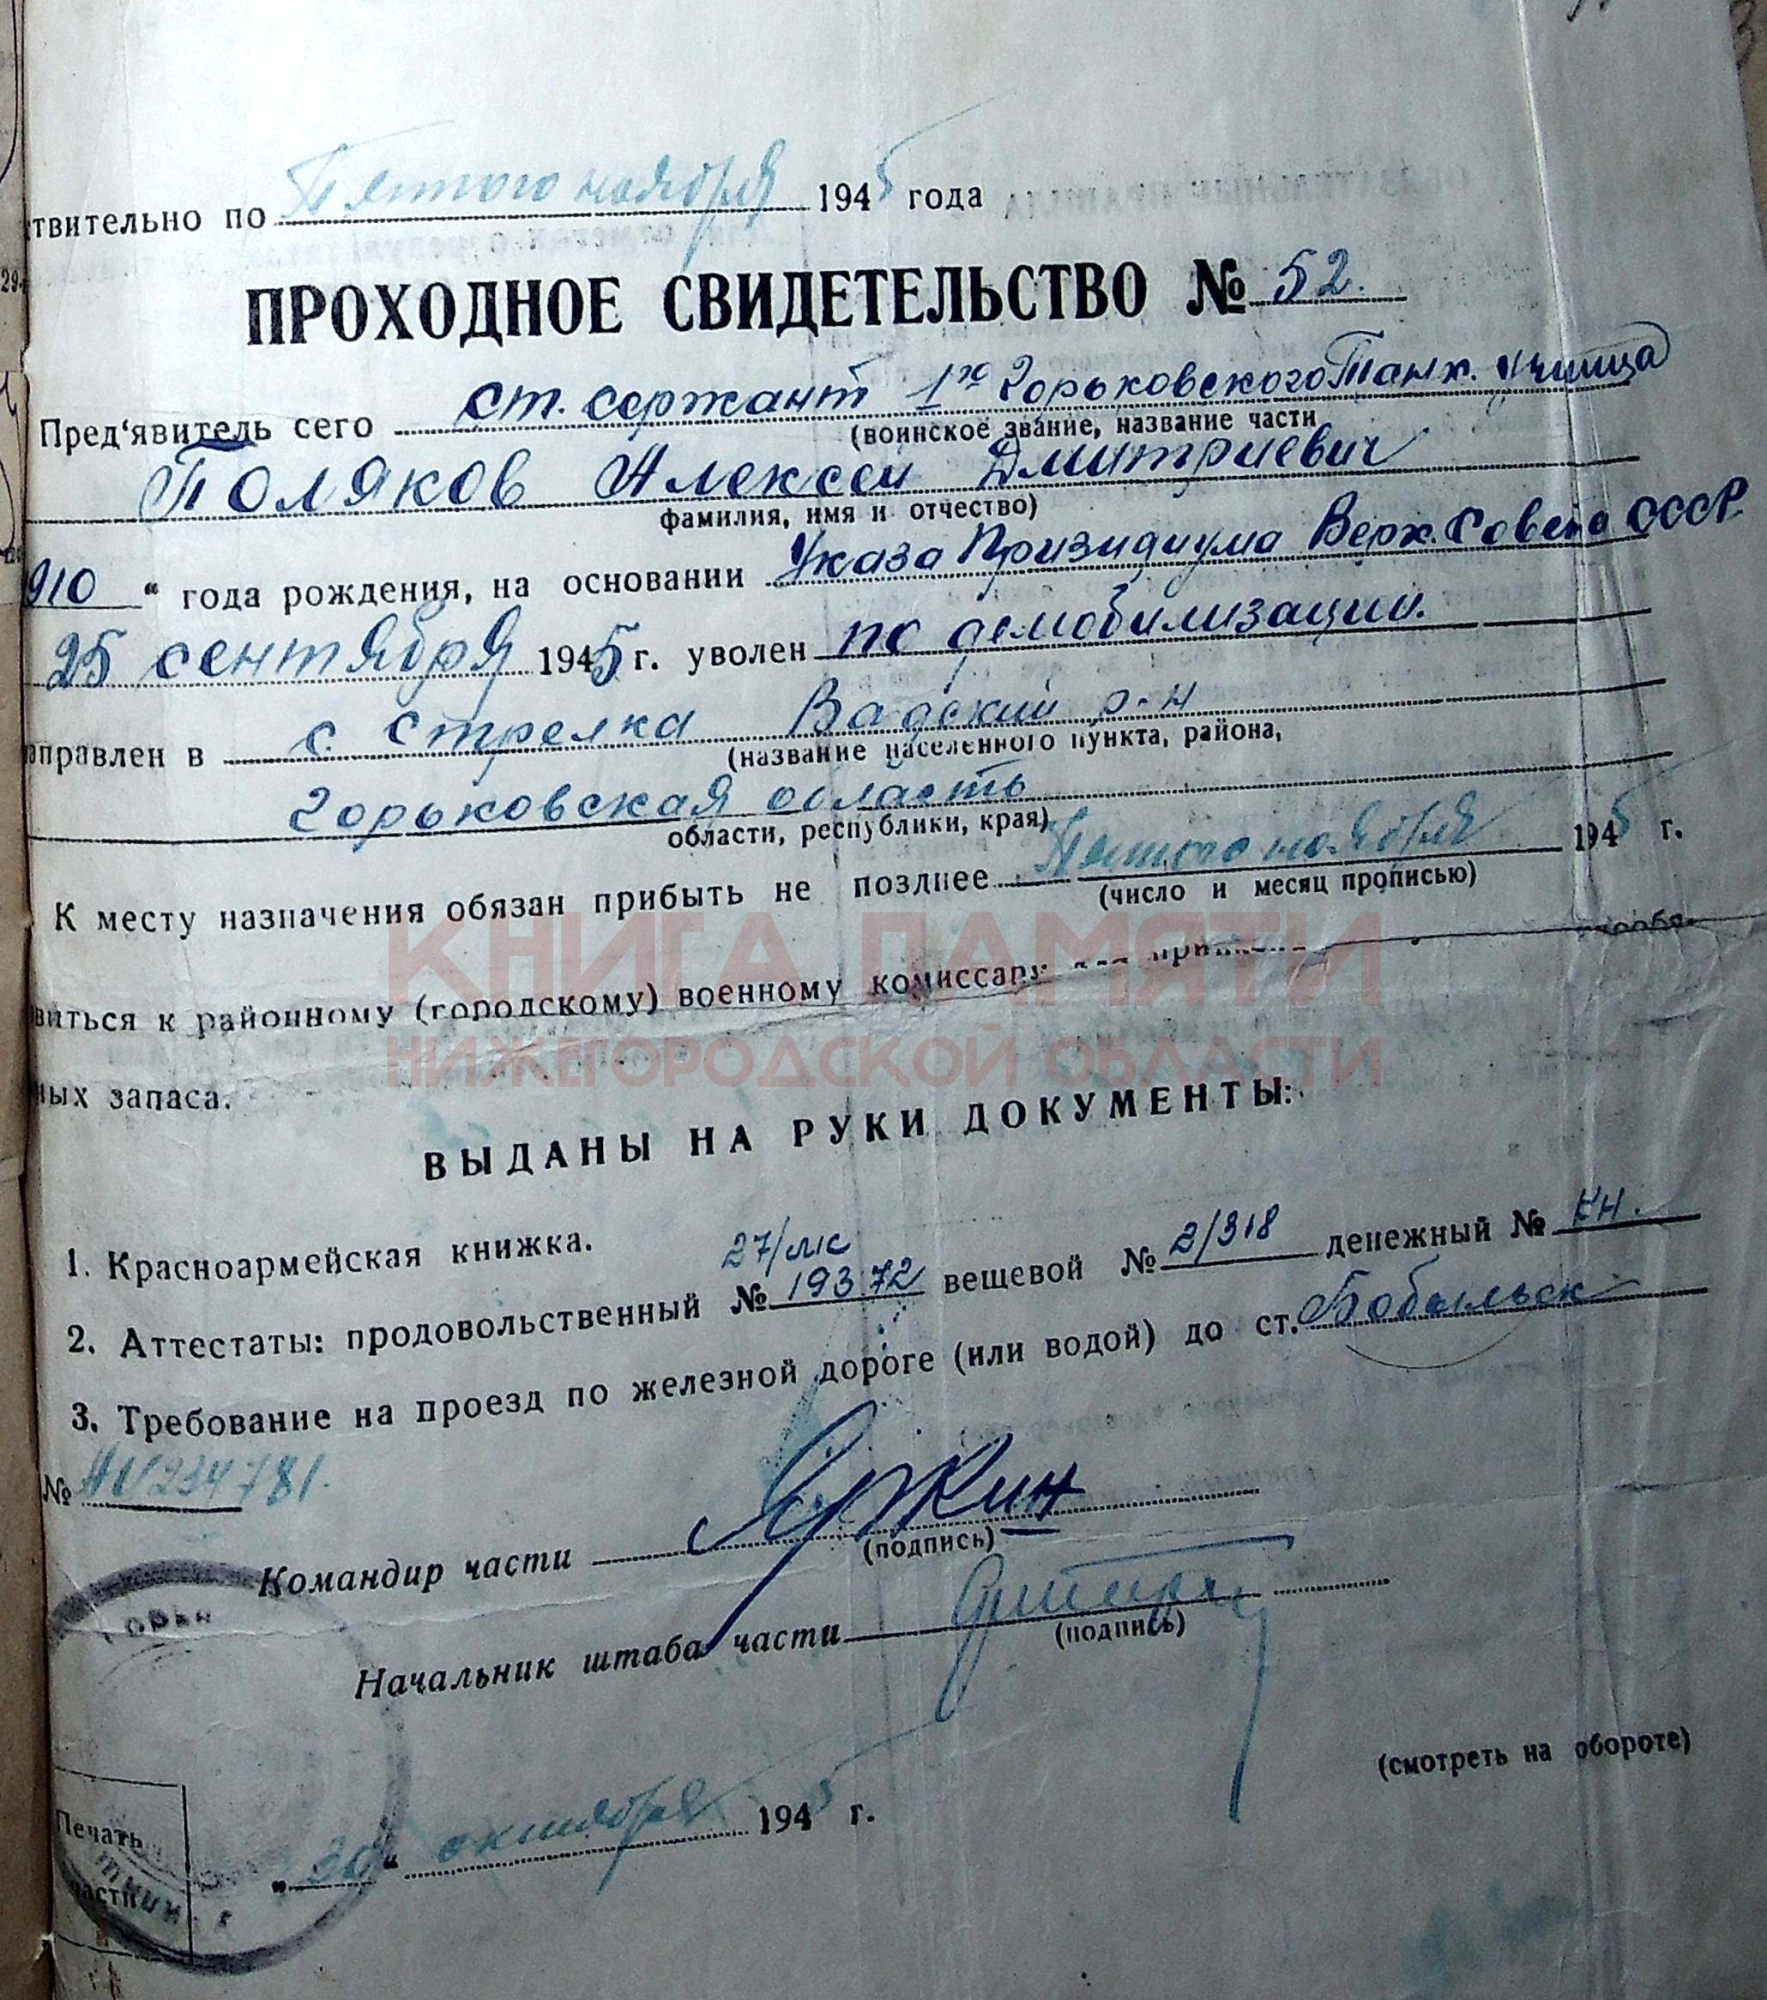 твительно по Пятого ноября 1945 года
ПРОХОДНОЕ СВИДЕТЕЛЬСТВО № 52.
Пред‘явитель сего ст. сержант 1го Горьковского Танк. училища
(воинское звание, название части
Поляков Алексей Дмитриевич
фамилия, имя и отчество)
910 “ года рождения, на основании Указа Призидиума Верх. Совета СССР
25 сентября 1945 г. уволен по демобилизации.
аправлен в с. Стрелка Вадский р-н
(название населенного пункта, района,
Горьковская область
области, республики, края)
К месту назначения обязан прибыть не позднее Пятого ноября 1945 г.
(число и месяц прописью)
виться к районному (городскому) военному комиссару
ных запаса.
КНИГА ПАМЯТИ
НИЖЕГОРОДСКОЙ ОБЛАСТИ
ВЫДАНЫ НА РУКИ ДОКУМЕНТЫ:
1. Красноармейская книжка.
27/лс
2. Аттестаты: продовольственный № 19372 вещевой № 2/318 денежный № КН.
3. Требование на проезд по железной дороге (или водой) до ст. Бобыльск
№ 234781.
Командир части Яркин
(подпись)
Начальник штаба части
(подпись)
(смотреть на обороте)
Печать
части
„30“ октября 1945 г.